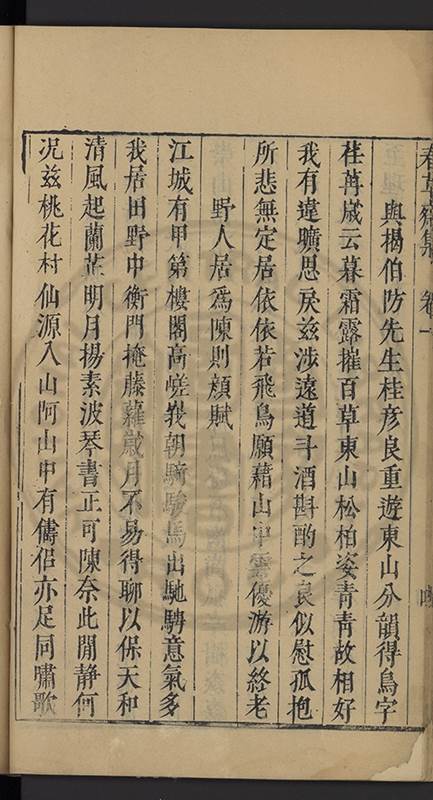 春草齋集　卷一
與揭伯防先生桂彥良重遊東山分韻得鳥字
荏苒歲云暮霜露摧百草東山松柏姿青青故相好
我有違曠思戾茲涉遠道斗酒斟酌之良似慰孤抱
所悲無定居依依若飛鳥願藉山中雲優游以終老
野人居為陳則顏賦
江城有甲第樓閣高嵯峩朝騎駿馬出馳騁意氣多
我居田野中衡門掩藤蘿歲月不易得聊以保天和
清風起蘭茝明月揚素波琴書正可陳奈此閒靜何
况茲桃花村仙源入山阿山中有儔侶亦足同嘯歌